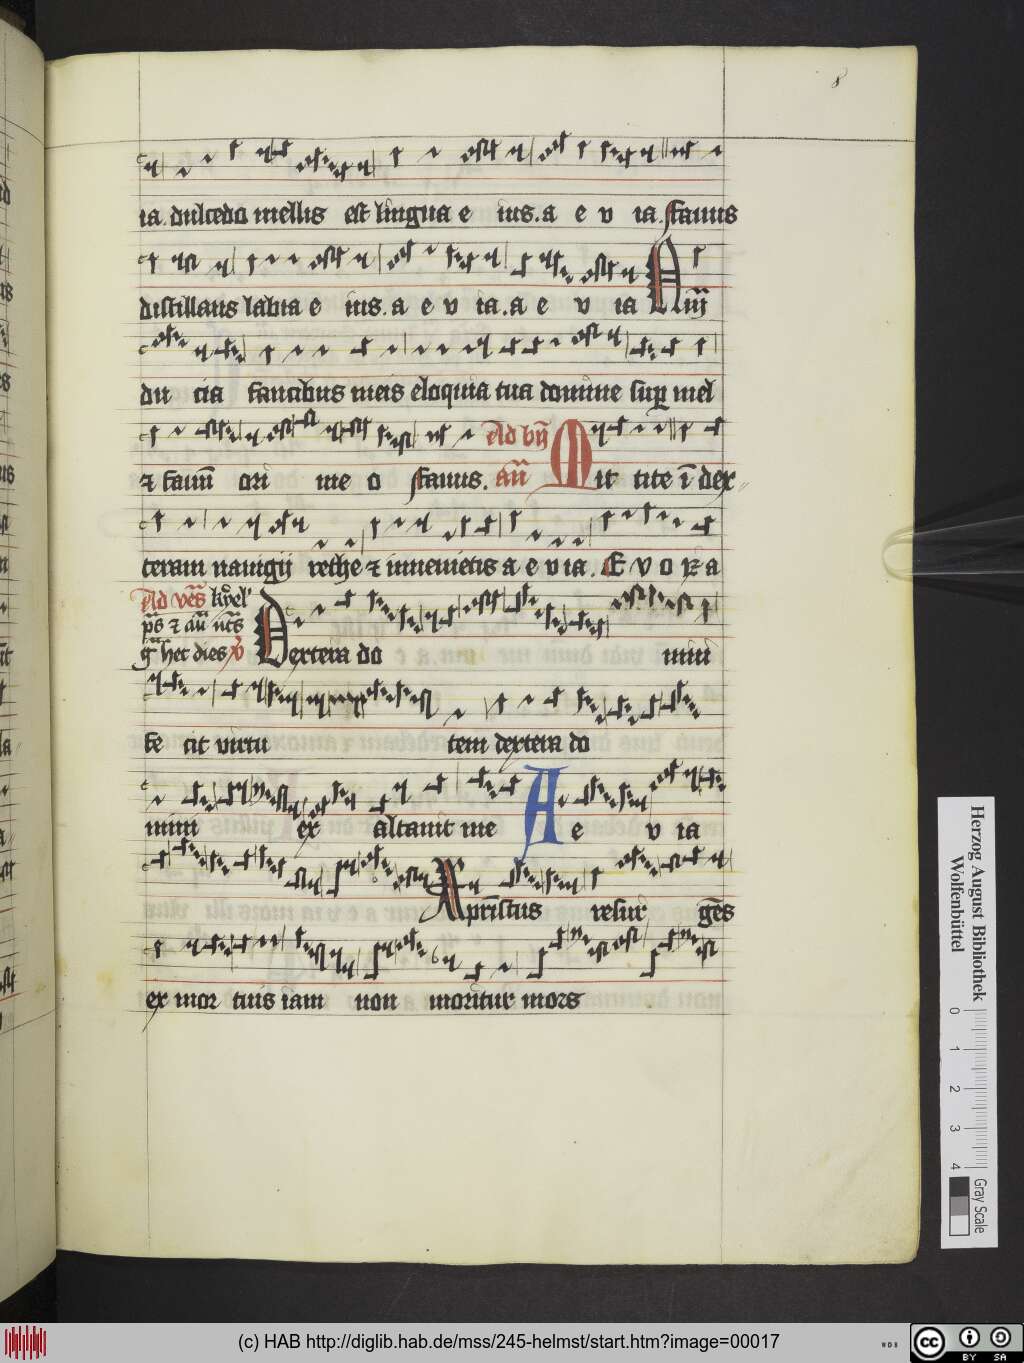 8
ia. dulcedo mellis est lingua e ius. a e v ia. ffauus
distillans labia e ius. a e v ia. a e v ia Quā
du cia faucibus meis eloquia tua domine sup mel
⁊ fauū ori me o ffauus. Ad bñ añ Mit tite ī dex
teram nauigij rethe ⁊ inuenietis a e v ia. E v o a
Ad veš kyrel'
ps ⁊ añ
hec dies Dextera do mini
fe cit virtu tem dextera do
mini ex altauit me A e v ia
xpristus resur gēs
ex mor tuis iam non moritur mors
Herzog August Bibliothek
Wolfenbüttel
0 1 2 3 4
Gray Scale
(c) HAB http://diglib.hab.de/mss/245-helmst/start.htm?image=00017
WDB
cc BY SA